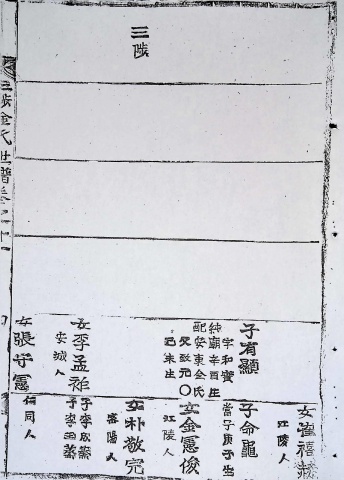 三陟
子有顯
字和實
純廟辛酉生
配安東金氏
父啟元〇
己未生
女李孟祚
安城人
女張守憲
仁同人
女崔禧
江陵人
子命龜
當子庚子生
女金憲俊
江陵人
女朴敬完
密陽人
三陟金氏世譜卷之十一